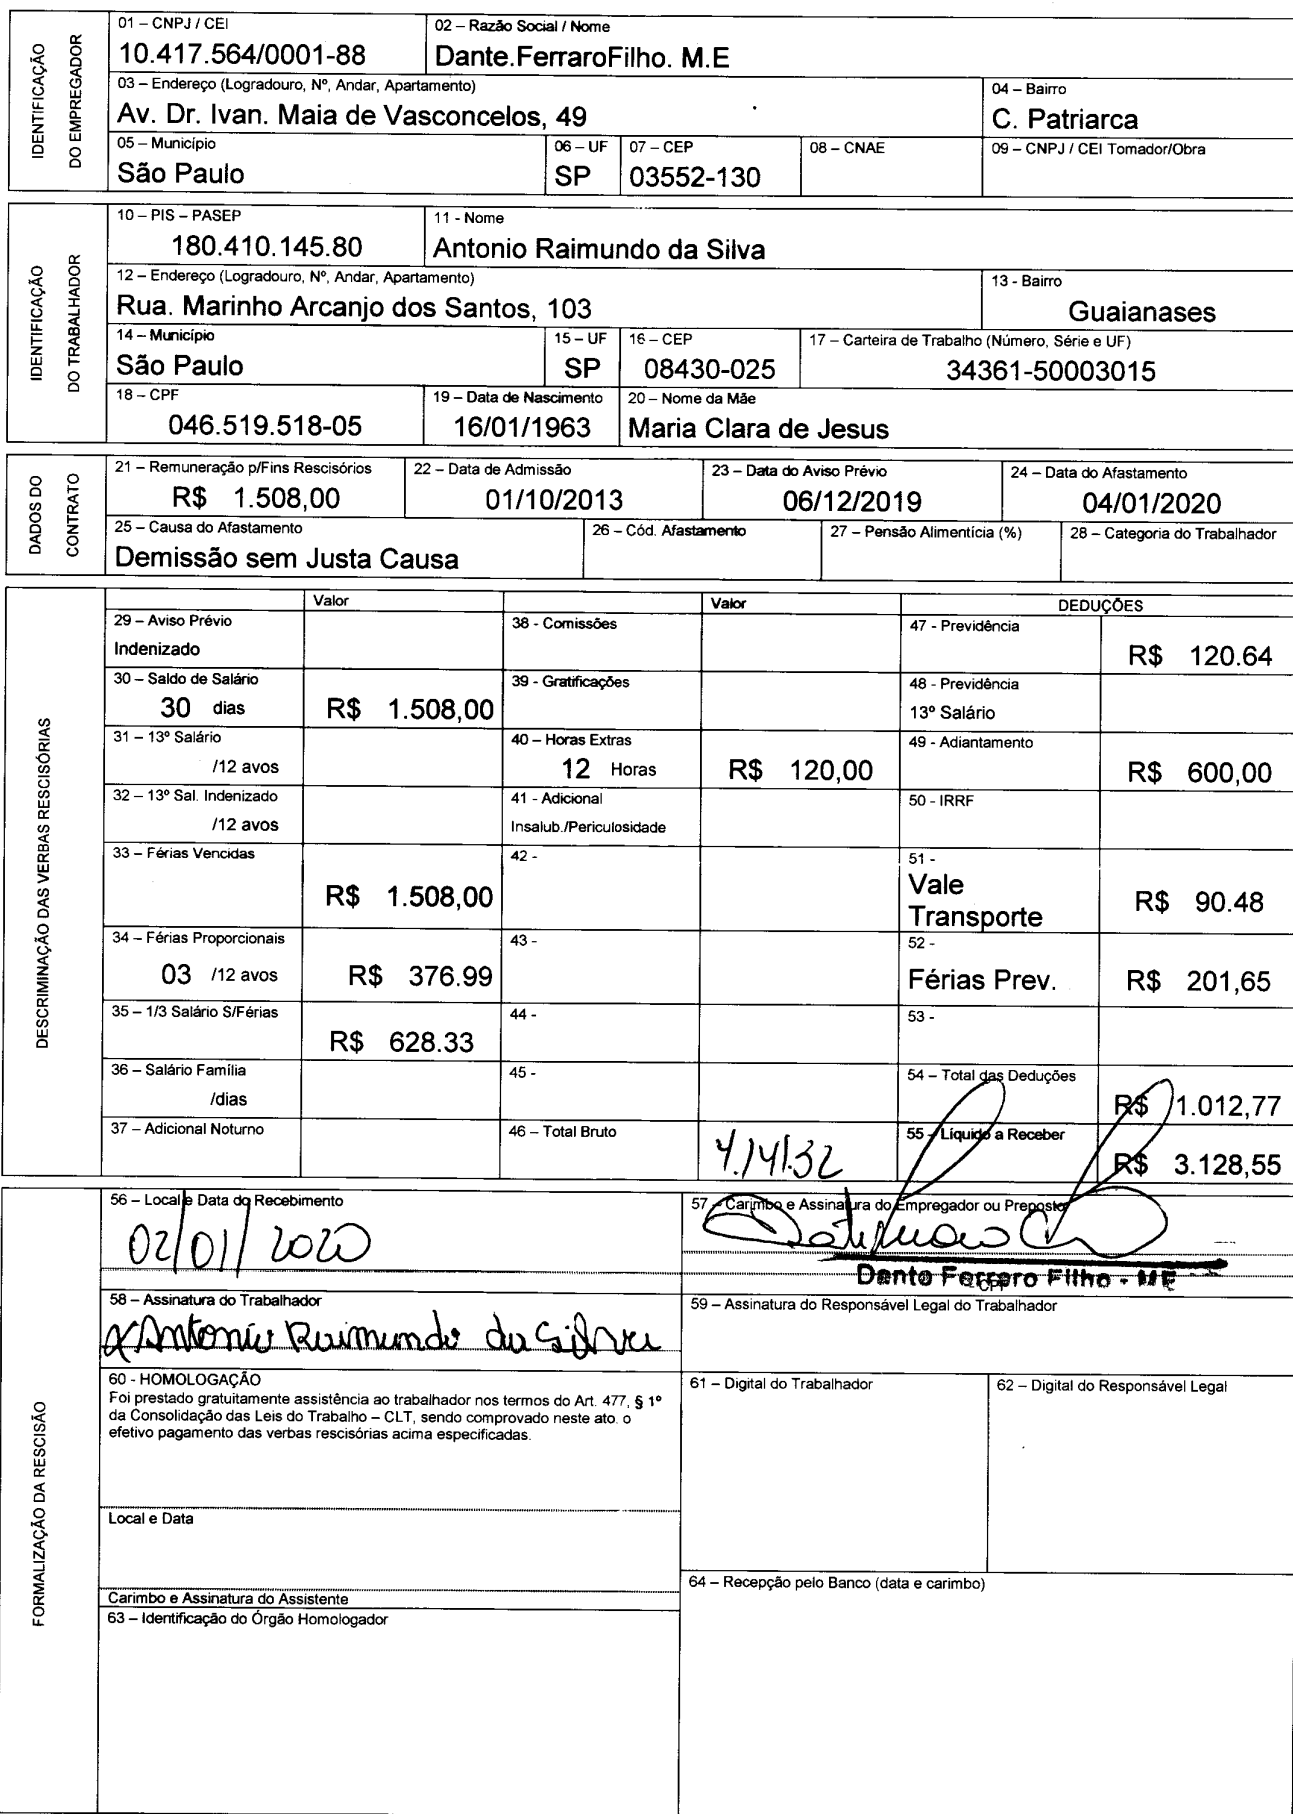 IDENTIFICAÇÃO
DO EMPREGADOR
01 – CNPJ / CEI
10.417.564/0001-88
02 – Razão Social / Nome
Dante.FerraroFilho. M.E
03 – Endereço (Logradouro, Nº, Andar, Apartamento)
Av. Dr. Ivan. Maia de Vasconcelos, 49
04 – Bairro
C. Patriarca
05 – Município
São Paulo
06 – UF
SP
07 – CEP
03552-130
08 – CNAE
09 – CNPJ / CEI Tomador/Obra
IDENTIFICAÇÃO
DO TRABALHADOR
10 – PIS – PASEP
180.410.145.80
11 - Nome
Antonio Raimundo da Silva
12 – Endereço (Logradouro, Nº, Andar, Apartamento)
Rua. Marinho Arcanjo dos Santos, 103
13 - Bairro
Guaianases
14 – Município
São Paulo
15 – UF
SP
16 – CEP
08430-025
17 – Carteira de Trabalho (Número, Série e UF)
34361-50003015
18 – CPF
046.519.518-05
19 – Data de Nascimento
16/01/1963
20 – Nome da Mãe
Maria Clara de Jesus
DADOS DO
CONTRATO
21 – Remuneração p/Fins Rescisórios
R$ 1.508,00
22 – Data de Admissão
01/10/2013
23 – Data do Aviso Prévio
06/12/2019
24 – Data do Afastamento
04/01/2020
25 – Causa do Afastamento
Demissão sem Justa Causa
26 – Cód. Afastamento
27 – Pensão Alimentícia (%)
28 – Categoria do Trabalhador
DESCRIMINAÇÃO DAS VERBAS RESCISÓRIAS
Valor
Valor
DEDUÇÕES
29 – Aviso Prévio
Indenizado
38 - Comissões
47 - Previdência
R$ 120.64
30 – Saldo de Salário
30 dias
R$ 1.508,00
39 - Gratificações
48 - Previdência
13º Salário
31 – 13º Salário
/12 avos
40 – Horas Extras
12 Horas
R$ 120,00
49 - Adiantamento
R$ 600,00
32 – 13º Sal. Indenizado
/12 avos
41 - Adicional
Insalub./Periculosidade
50 - IRRF
33 – Férias Vencidas
R$ 1.508,00
42 -
51 -
Vale
Transporte
R$ 90.48
34 – Férias Proporcionais
03 /12 avos
R$ 376.99
43 -
52 -
Férias Prev.
R$ 201,65
35 – 1/3 Salário S/Férias
R$ 628.33
44 -
53 -
36 – Salário Família
/dias
45 -
54 – Total das Deduções
R$ 1.012,77
37 – Adicional Noturno
46 – Total Bruto
4.141.32
55 – Líquido a Receber
R$ 3.128,55
FORMALIZAÇÃO DA RESCISÃO
56 – Local e Data do Recebimento
02/01/2020
57 – Carimbo e Assinatura do Empregador ou Preposto
Dante Ferraro Filho - ME
58 – Assinatura do Trabalhador
x Antonio Raimundo da Silva
59 – Assinatura do Responsável Legal do Trabalhador
60 - HOMOLOGAÇÃO
Foi prestado gratuitamente assistência ao trabalhador nos termos do Art. 477, § 1º
da Consolidação das Leis do Trabalho – CLT, sendo comprovado neste ato. o
efetivo pagamento das verbas rescisórias acima especificadas.
61 – Digital do Trabalhador
62 – Digital do Responsável Legal
Local e Data
Carimbo e Assinatura do Assistente
63 – Identificação do Órgão Homologador
64 – Recepção pelo Banco (data e carimbo)